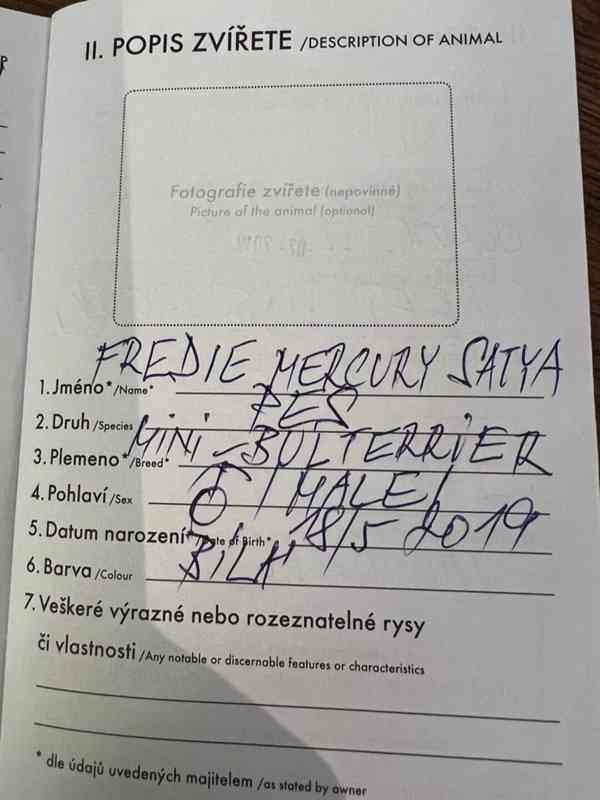 II. POPIS ZVÍŘETE /DESCRIPTION OF ANIMAL
Fotografie zvířete (nepovinné)
Picture of the animal (optional)
1. Jméno*/Name* FREDIE MERCURY SATYA
2. Druh /Species PES
3. Plemeno*/Breed* MINI-BULTERRIER
4. Pohlaví /Sex ♂ /MALE/
5. Datum narození*/Date of Birth* 18/5 2019
6. Barva /Colour BÍLÁ
7. Veškeré výrazné nebo rozeznatelné rysy
či vlastnosti /Any notable or discernable features or characteristics
* dle údajů uvedených majitelem /as stated by owner